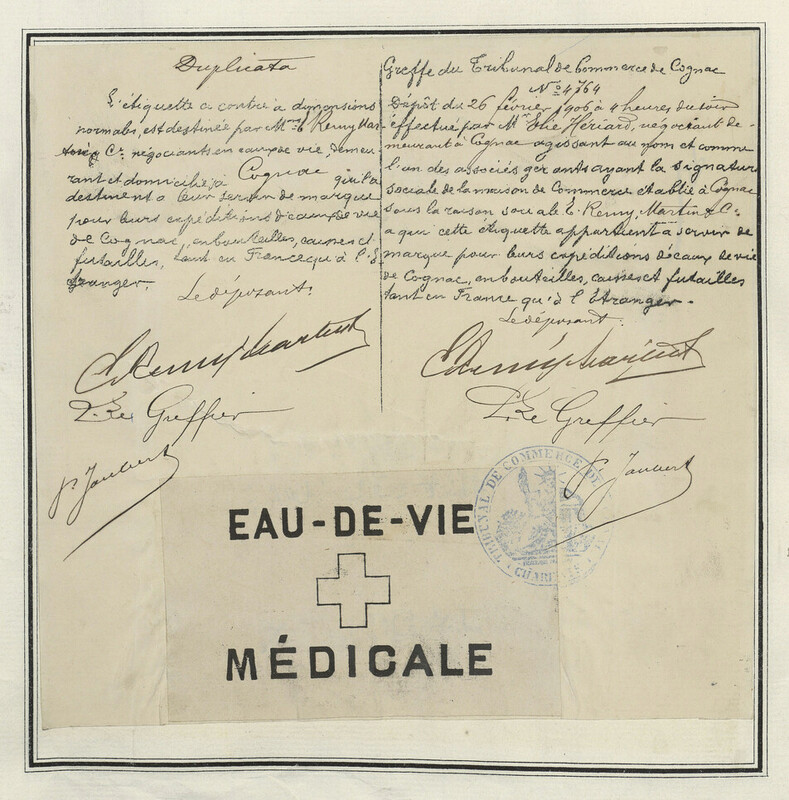 Duplicata
L'étiquette ci contre à dimensions
normales, est destinée par Mrs E. Remy Mar
Cie négociants en eaux de vie, demeu
rant et domiciliés à Cognac qui la
destinent à leur servir de marque
pour leurs expéditions d'eaux de vie
de Cognac, en bouteilles, caisses et
futailles, tant en France qu'à l'É
tranger.
Le déposant:
E. Remy Martin & Co
Le Greffier
Jaubert
Greffe du Tribunal de Commerce de Cognac
No 4764
Dépôt du 26 février 1906 à 4 heures du soir
effectué par Mr Elie Hériard, négociant de-
meurant à Cognac agissant au nom et comme
l'un des associés gérants ayant la signature
sociale de la maison de Commerce établie à Cognac
sous la raison sociale E. Remy Martin & Co
à qui cette étiquette appartient à servir de
marque pour leurs expéditions d'eaux de vie
de Cognac, en bouteilles, caisses et futailles
tant en France qu'à l'Étranger.
Le déposant:
E. Remy Martin & Co
Le Greffier
Jaubert
TRIBUNAL DE COMMERCE DE
EAU-DE-VIE
MÉDICALE